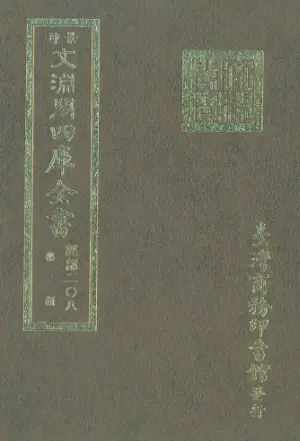 景印
文淵閣四庫全書
經部二〇八
類
臺灣商務印書館發行